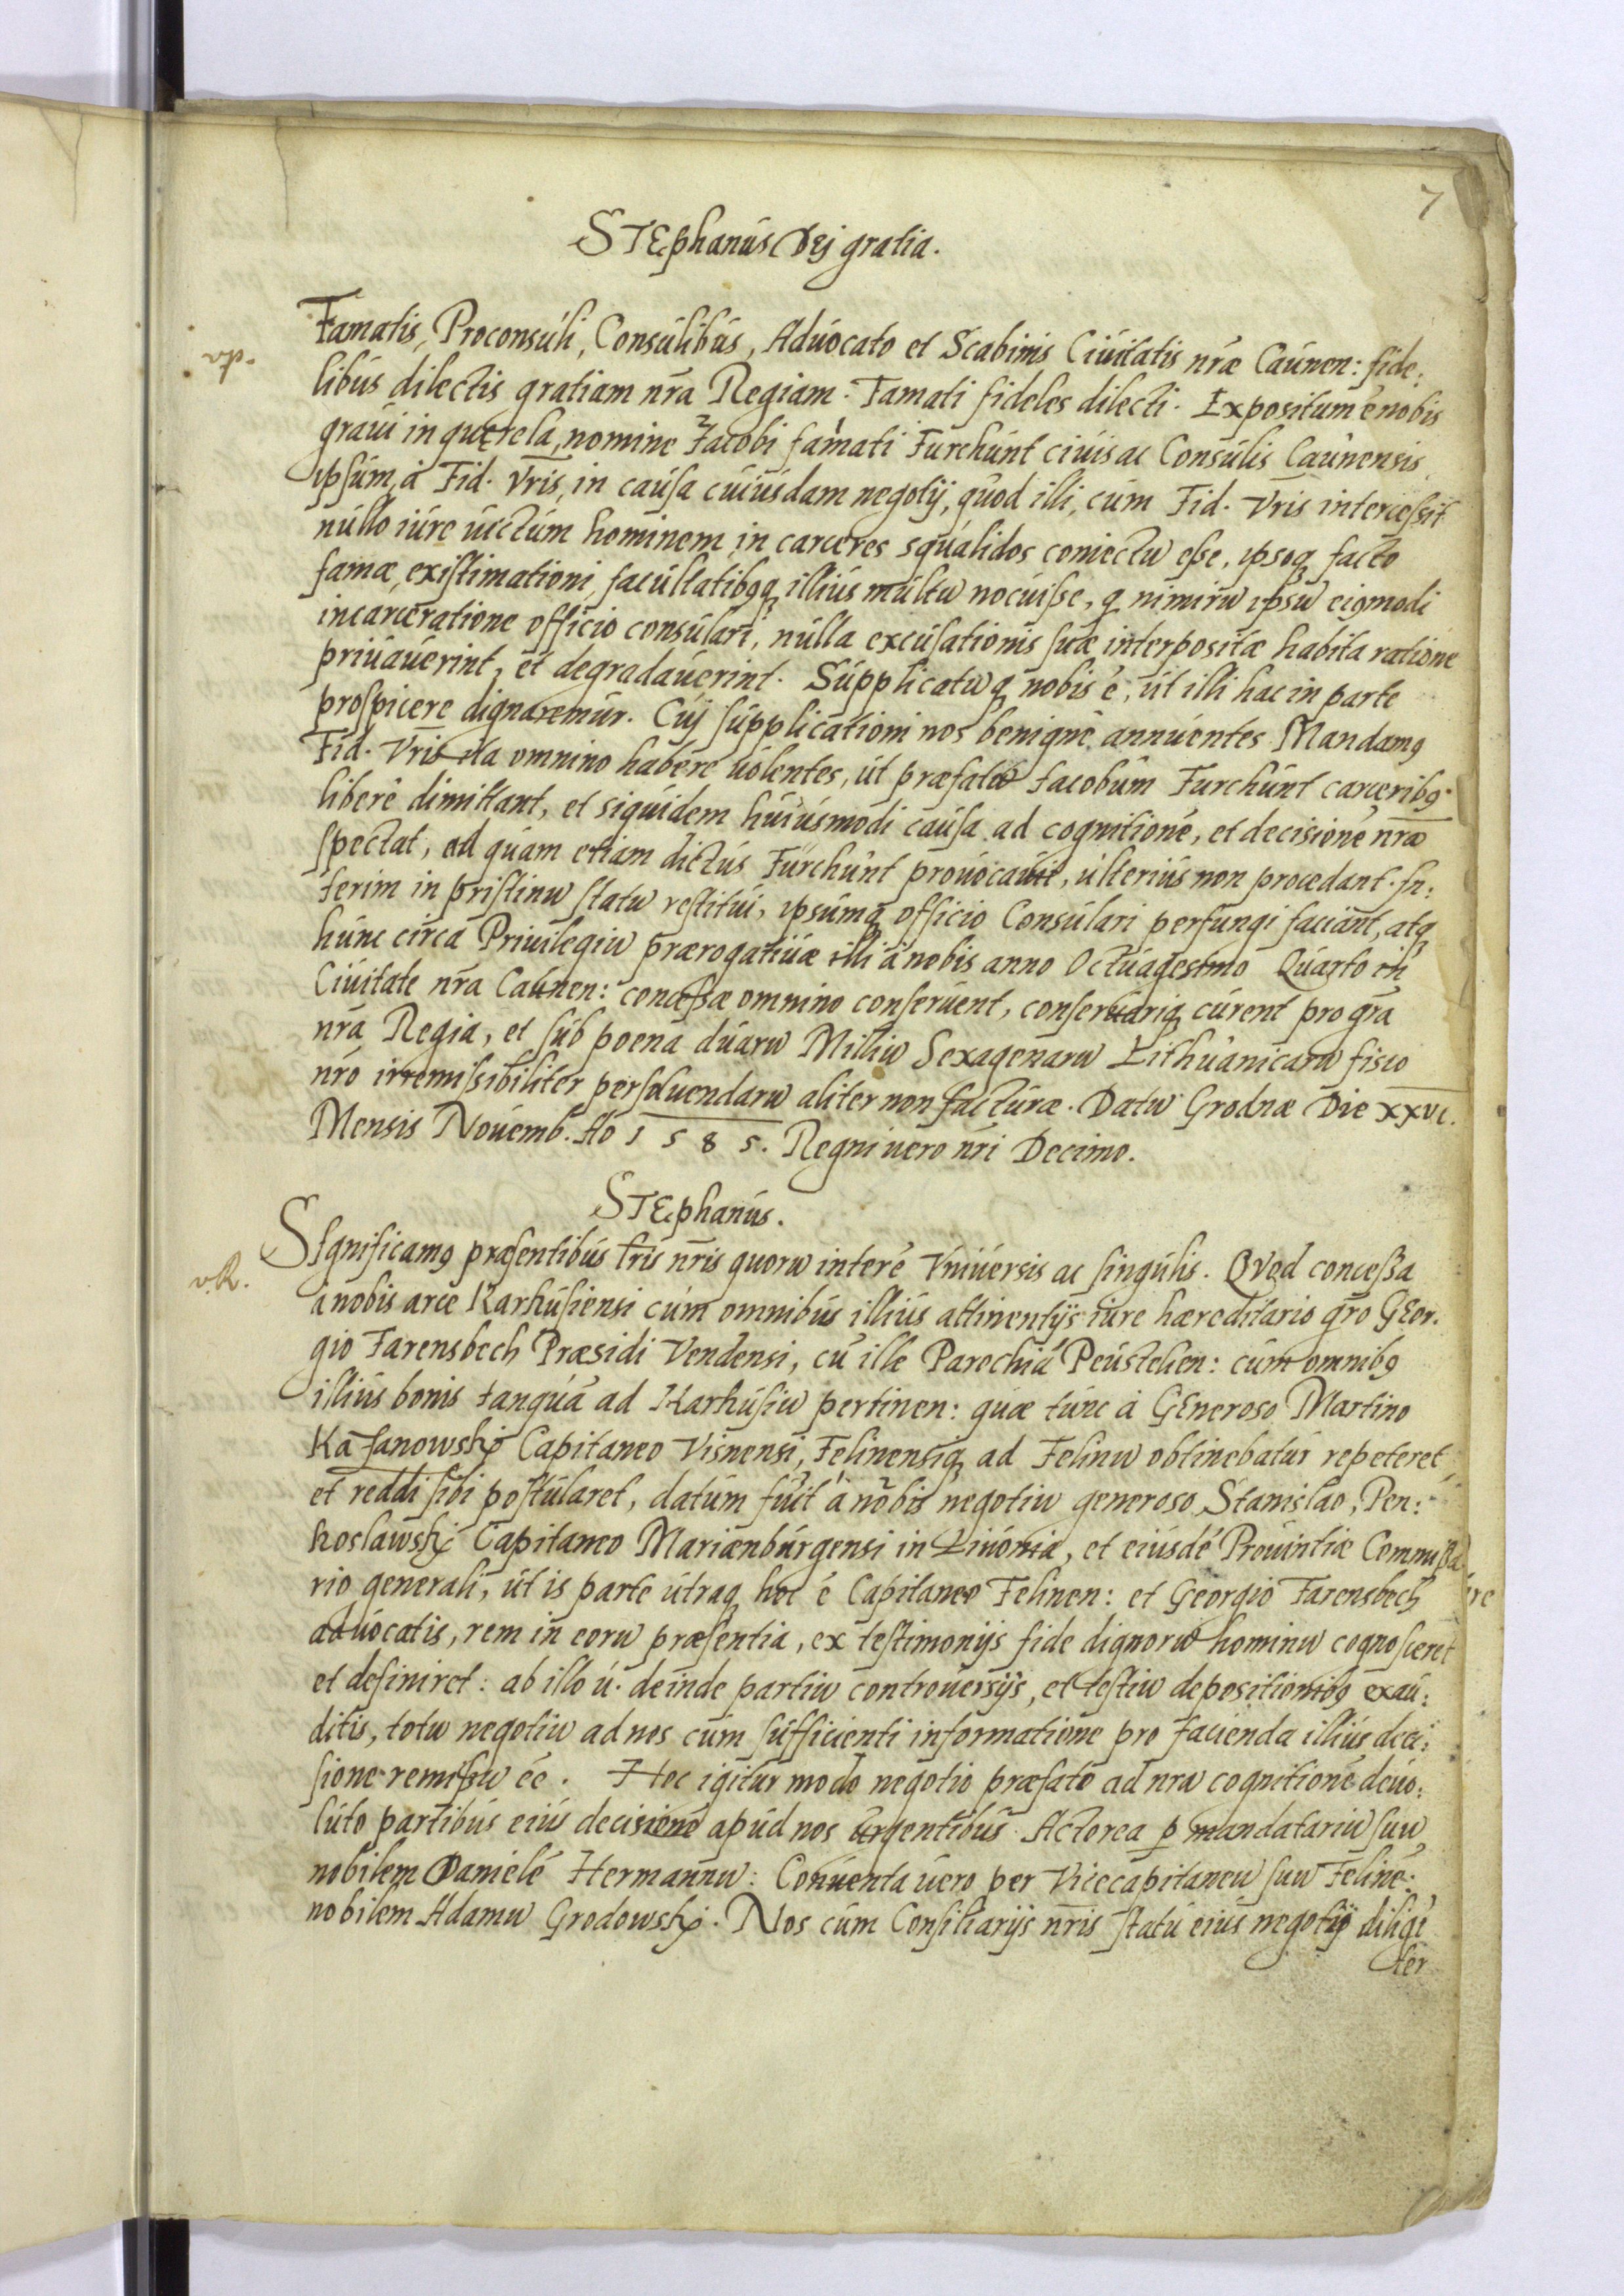 7
STEphanús Dej gratia.
Famatis, Proconsúli, Consúlibús, Adúocato et Scabinis Ciúitatis nr̃æ Caúnen: fide:
libús dilectis gratiam nr̃a Regiam. Famati fideles dilecti. Expositum é nobis
graúi in querela, nomine Jacobi famati Turchúnt ciúis ac Consúlis Caúnensis
ipsúm, á Fid. Vr̃is, in caúsa cúiúsdam negotij, qúod illi, cúm Fid. Vr̃is intercessit
núllo iúre úictúm hominem in carceres sqúalidos coniectũ esse, ipsoq́ꝫ facto
famæ, existimationi, facúltatibꝰqꝫ illiús múltũ nocúisse, q nimirũ ipsũ eiꝰmodi
incarceratione officio consúlari, núlla excúsationis súæ interpositæ habita ratione
priúaúerint, et degradaúerint. Súpplicatũqꝫ nobis é, út illi hac in parte
prospicere dignaremúr. Cúj súpplicationi nos benigné annúentes Mandamꝰ
Fid. Vr̃is ita omnino habere úolentes, út præfatũ Jacobúm Turchúnt carceribꝰ
liberé dimittant, et siqúidem húiúsmodi caúsa ad cognitioné, et decisioné nr̃ã
spectat, ad qúam etiam dictús Túrchúnt proúocaúit, últeriús non procedant. In:
terim in pristinũ statũ restitúi, ipsúmqꝫ officio Consúlari perfúngi faciant, atqꝫ
húnc circa Priúilegiũ prærogatiúæ illi á nobis anno Octúagesimo Qúarto in
Ciúitate nr̃a Caúnen: concessæ omnino conserúent, conserúariqꝫ cúrent pro gr̃a
nr̃a Regia, et súb poena dúarũ Milliũ Sexagenarũ Lithúanicarũ fisco
nr̃o irremissibiliter persolúendarũ aliter non factúræ. Datũ Grodnæ Die xxvi.
Mensis Noúemb. Ao 1585. Regni úero nr̃i Decimo.
STEphanús.
SIgnificamꝰ præsentibús lr̃is nr̃is quorũ interé Vniúersis ac singúlis. QVod concessa
á nobis arce Karkúsiensi cúm omnibús illiús attinentijs iúre hæreditario gr̃o GEor.
gio Farensbech Præsidi Vendensi, cú ille Parochiá Peústelien: cúm omnibꝰ
illiús bonis tanqúá ad Karkúsiũ pertinen: qúæ túnc á GEneroso Martino
Kasanowskj Capitaneo Visnensi, Felinensiqꝫ ad Felinũ obtinebatúr repeteret
et reddi sibi postúlaret, datúm fúit á nobis negotiũ generoso Stanislao, Pen:
koslawskj Capitaneo Marianbúrgensi in Liúonia, et eiúsdé Proúintiæ Commissa
rio generali, út is parte útraqꝫ hoc é Capitaneo Felinen: et Georgio Farensbech
adúocatis, rem in eorũ præsentia, ex testimonijs fide dignorũ hominũ cognosceret
et definiret: ab illo ú. deinde partiũ controúersijs, et testiũ depositionibꝰ exaú:
ditis, totũ negotiũ ad nos cúm súfficienti informatione pro facienda illiús deci:
sione remissũ éé. Hoc igitur modo negotio præfato ad nr̃ã cognitioné deúo:
lúto partibús eiús decisioné apúd nos úrgentibús. Actorea ꝑ mandatariũ súũ
nobilem Danielé Hermannũ: Conúenta úero per Vicecapitaneũ súũ Feliné:
nobilem Adamũ Grodowskj. Nos cúm Consiliarijs nr̃is statú eiús negotij diligé
ter